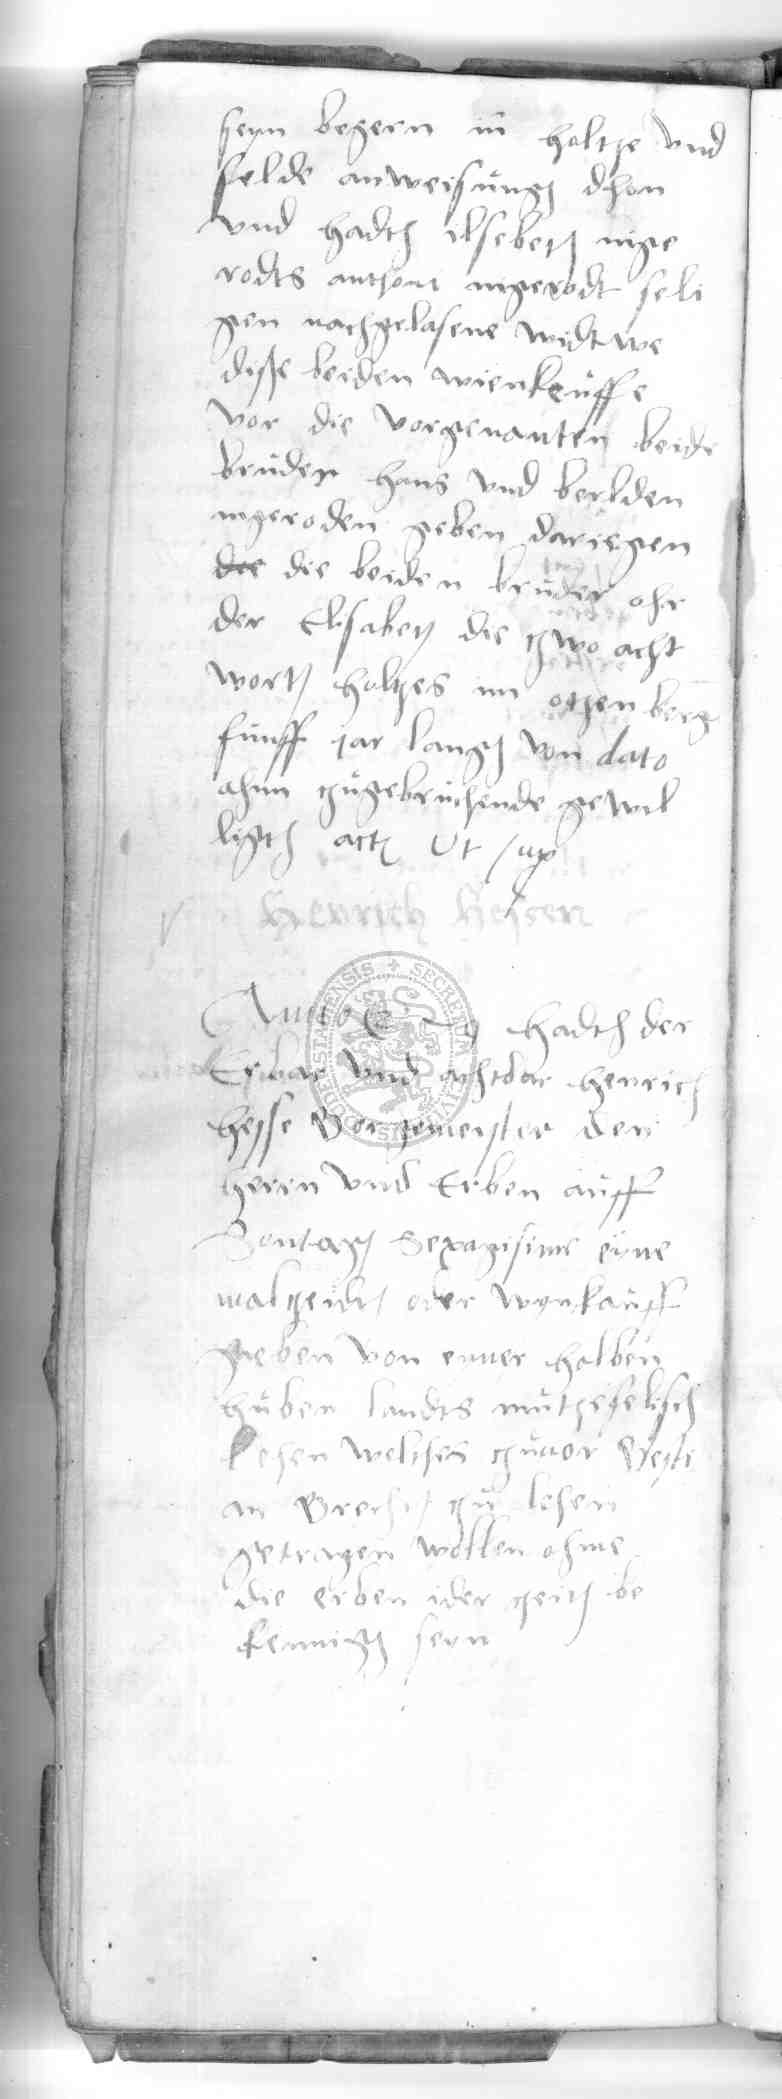 seyn begern in holtze vnd
felde anweisung dhon
vnd hadth ilsebeth inge
rodts anthoni ingerodt seli
gen nachgelasene widtwe
diße beiden wienkeuffe
vor die vorgenanten beide
bruder hans vnd berlden
ingeroden geben dariegen
die die beiden bruder ohr
der Elisabeth die zwo acht
worth holtzes im othen berg
funff jar langh von dato
ahnn zugebruchende gewil
ligth act Ut sup
Henrich Heisen
Anno hadth der
Erbar vnd achtbar Henrich
heise Borgemeister den
herrn vnd Erben auff
Sontagh Sexagisime eyne
malzeidt oder wynkauff
geben von einer halben
huben landts
lehen welches zuuor
an Brecht zu lehen
getragen wollen ohme
die erben ider zeith be
kennigh seyn
SECRETUM CIVIUM